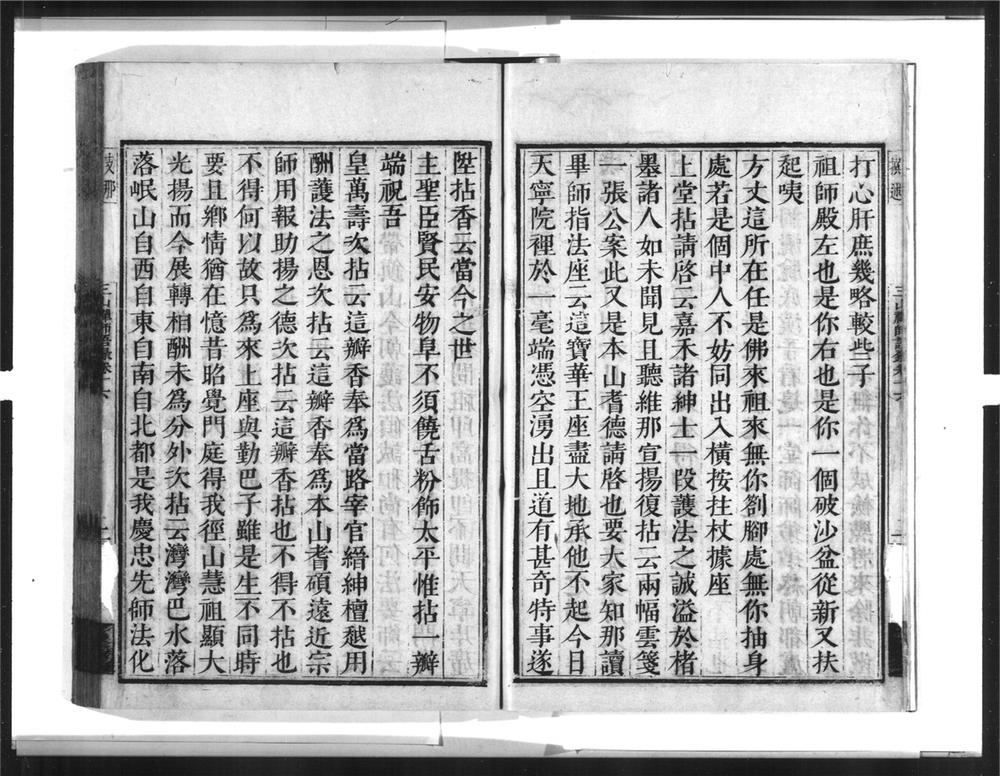 打心肝庶幾略較些子
祖師殿左也是你右也是你一個破沙盆從新又扶
起咦
方丈這所在任是佛來祖來無你劄腳處無你抽身
處若是個中人不妨同出入橫按拄杖據座
上堂拈請啓云嘉禾諸紳士一段護法之誠溢於楮
墨諸人如未聞見且聽維那宣揚復拈云兩幅雲箋
一張公案此又是本山耆德請啓也要大家知那讀
畢師指法座云這寶華王座盡大地承他不起今日
天寧院裡於一毫端憑空湧出且道有甚奇特事遂
陞拈香云當今之世
主聖臣賢民安物阜不須饒舌粉飾太平惟拈一瓣
端祝吾
皇萬壽次拈云這瓣香奉爲當路宰官縉紳檀越用
酬護法之恩次拈云這瓣香奉爲本山耆碩遠近宗
師用報助揚之德次拈云這瓣香拈也不得不拈也
不得何以故只爲來上座與勤巴子雖是生不同時
要且鄉情猶在憶昔昭覺門庭得我徑山慧祖顯大
光揚而今展轉相酬未爲分外次拈云灣灣巴水落
落岷山自西自東自南自北都是我慶忠先師法化